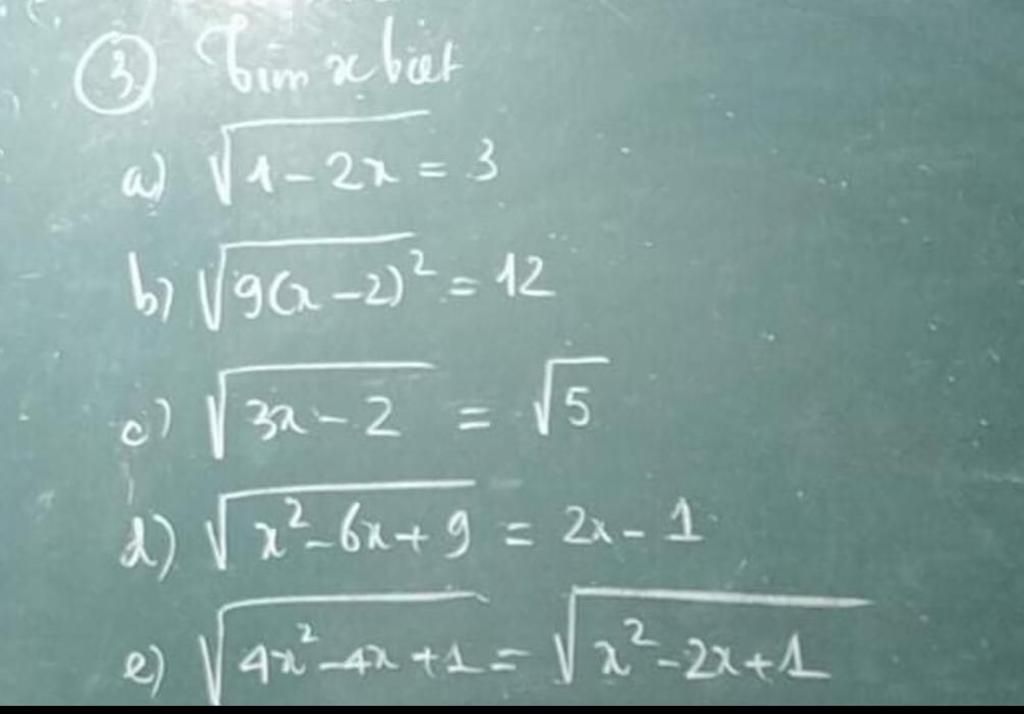 ③ Tìm x biết
a) √(1-2x) = 3
b) √(9(x-2)²) = 12
c) √(3x-2) = √5
d) √(x²-6x+9) = 2x-1
e) √(4x²-4x+1) = √(x²-2x+1)